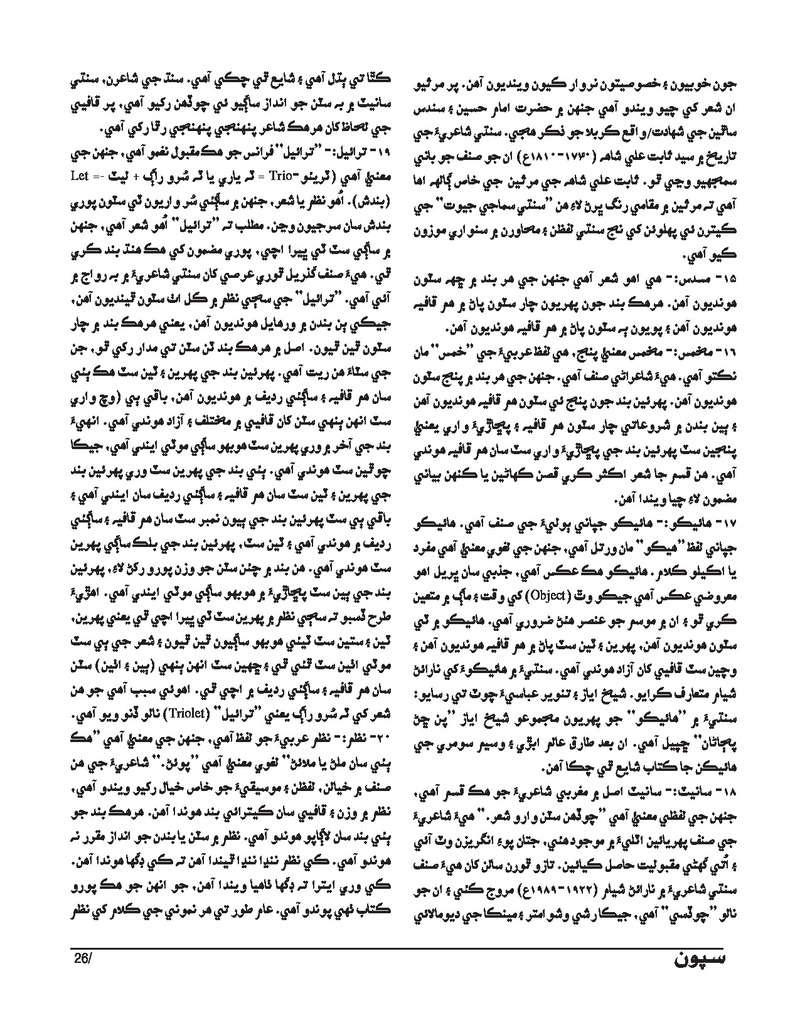 جون خوبيون ۽ خصوصيتون نروار ڪيون وينديون آهن. پر مرثيو
ان شعر کي چيو ويندو آهي جنهن ۾ حضرت امام حسين ۽ سندس
ساٿين جي شهادت/واقع ڪربلا جو ذڪر هجي. سنڌي شاعريءَ جي
تاريخ ۾ سيد ثابت علي شاهہ (۱۷۴۰-۱۸۱۰ع) ان جو صنف جو باني
سمجهيو وڃي ٿو. ثابت علي شاهہ جي مرثين جي خاص ڳالهہ اها
آهي تہ مرثين ۾ مقامي رنگ ڀرڻ لاءِ هن ”سنڌي سماجي جيوت“ جي
ڪيترن ئي پهلوئن کي نج سنڌي لفظن ۽ محاورن ۾ سنواري موزون
ڪيو آهي.
۱۵- مسدس:- هي اهو شعر آهي جنهن جي هر بند ۾ ڇهہ سٽون
هونديون آهن. هرهڪ بند جون پهريون چار سٽون پاڻ ۾ هم قافيہ
هونديون آهن ۽ پويون ٻہ سٽون پاڻ ۾ هم قافيہ هونديون آهن.
۱۶- مخمس:- مخمس معنيٰ پنج، هي لفظ عربيءَ جي ”خمس“ مان
نڪتو آهي. هيءَ شاعراڻي صنف آهي. جنهن جي هر بند ۾ پنج سٽون
هونديون آهن. پهرئين بند جون پنج ئي سٽون هم قافيہ هونديون آهن
۽ ٻين بندن ۾ شروعاتي چار سٽون هم قافيہ ۽ پڇاڙيءَ واري يعنيٰ
پنجين سٽ پهرئين بند جي پڇاڙيءَ واري سٽ سان هم قافيہ هوندي
آهي. هن قسم جا شعر اڪثر ڪري قصن ڪهاڻين يا ڪنهن بياني
مضمون لاءِ چيا ويندا آهن.
۱۷- هائيڪو:- هائيڪو جپاني ٻوليءَ جي صنف آهي. هائيڪو
جپاني لفظ ”هيڪو“ مان ورتل آهي، جنهن جي لغوي معنيٰ آهي مفرد
يا اڪيلو ڪلام. هائيڪو هڪ عڪس آهي، جذبي سان ڀريل اهو
معروضي عڪس آهي جيڪو وٿ (Object) کي وقت ۽ ماڳ ۾ متعين
ڪري ٿو ۽ ان ۾ موسم جو عنصر هئڻ ضروري آهي. هائيڪو ۾ ٽي
سٽون هونديون آهن، پهرين ۽ ٽين سٽ پاڻ ۾ هم قافيہ هونديون آهن ۽
وچين سٽ قافيي کان آزاد هوندي آهي. سنڌيءَ ۾ هائيڪوءَ کي نارائڻ
شيام متعارف ڪرايو. شيخ اياز ۽ تنوير عباسيءَ چوٽ تي رسايو:
سنڌيءَ ۾ ”هائيڪو“ جو پهريون مجموعو شيخ اياز ”پن ڇڻ
پڄاڻان“ ڇپيل آهي. ان بعد طارق عالم ابڙي ۽ وسيم سومري جي
هائيڪن جا ڪتاب شايع ٿي چڪا آهن.
۱۸- سانيٽ:- سانيٽ اصل ۾ مغربي شاعريءَ جو هڪ قسم آهي،
جنهن جي لفظي معنيٰ آهي ”چوڏهن سٽن وارو شعر.“ هيءَ شاعريءَ
جي صنف پهريائين اٽليءَ ۾ موجود هئي، جتان پوءِ انگريزن وٽ آئي
۽ اُتي گهڻي مقبوليت حاصل ڪيائين. تازو ٿورن سالن کان هيءَ صنف
سنڌي شاعريءَ ۾ نارائڻ شيام (۱۹۲۲-۱۹۸۹ع) مروج ڪئي ۽ ان جو
نالو ”چوڏسي“ آهي، جيڪا رشي وشوامتر ۽ مينڪا جي ديومالائي
ڪٿا تي ٻڌل آهي ۽ شايع ٿي چڪي آهي. سنڌ جي شاعرن، سنڌي
سانيٽ ۾ بہ سٽن جو انداز ساڳيو ئي چوڏهن رکيو آهي، پر قافيي
جي لحاظ کان هرهڪ شاعر پنهنجي پنهنجي رٿا رکي آهي.
۱۹- ترائيل:- ”ترائيل“ فرانس جو هڪ مقبول نغمو آهي، جنهن جي
معنيٰ آهي ( ٽرينو -Trio = ٽہ ياري يا ٽہ سُرو راڳ + ليٽ -= Let
(بندش). اُهو نظم يا شعر، جنهن ۾ ساڳئي سُر واريون ٽي سٽون پوري
بندش سان سرجيون وڃن. مطلب تہ ”ترائيل“ اُهو شعر آهي، جنهن
۾ ساڳي سٽ ٽي ڀيرا اچي، پوري مضمون کي هڪ هنڌ بند ڪري
ٿي. هيءَ صنف گذريل ٿوري عرصي کان سنڌي شاعريءَ ۾ بہ رواج ۾
آئي آهي. ”ترائيل“ جي سڄي نظم ۾ ڪل اٺ سٽون ٿينديون آهن،
جيڪي ٻن بندن ۾ ورهايل هونديون آهن، يعني هرهڪ بند ۾ چار
سٽون ٿين ٿيون. اصل ۾ هرهڪ بند ٽن سٽن تي مدار رکي ٿو، جن
جي سٽاءَ هن ريت آهي. پهرئين بند جي پهرين ۽ ٽين سٽ هڪ ٻئي
سان هم قافيہ ۽ ساڳئي رديف ۾ هونديون آهن، باقي ٻي (وچ واري
سٽ انهن ٻنهي سٽن کان قافيي ۾ مختلف ۽ آزاد هوندي آهي. انهيءَ
بند جي آخر ۾ وري پهرين سٽ هوبهو ساڳي موٽي ايندي آهي، جيڪا
چوٿين سٽ هوندي آهي. ٻئي بند جي پهرين سٽ وري پهرئين بند
جي پهرين ۽ ٽين سٽ سان هم قافيہ ۽ ساڳئي رديف سان ايندي آهي ۽
باقي ٻي سٽ پهرئين بند جي ٻيون نمبر سٽ سان هم قافيہ ۽ ساڳئي
رديف ۾ هوندي آهي ۽ ٽين سٽ، پهرئين بند جي بلڪ ساڳي پهرين
سٽ هوندي آهي. هن بند ۾ چئن سٽن جو وزن پورو رکڻ لاءِ، پهرئين
بند جي ٻين سٽ پڇاڙيءَ ۾ هوبهو ساڳي موٽي ايندي آهي. اهڙيءَ
طرح ڏسبو تہ سڄي نظم ۾ پهرين سٽ ٽي ڀيرا اچي ٿي يعني پهرين،
ٽين ۽ ستين سٽ ٽيئي هوبهو ساڳيون ٿين ٿيون ۽ شعر جي ٻي سٽ
موٽي اٺين سٽ ٿئي ٿي ۽ ڇهين سٽ انهن ٻنهي (ٻين ۽ اٺين) سٽن
سان هم قافيہ ۽ ساڳئي رديف ۾ اچي ٿي. اهوئي سبب آهي جو هن
شعر کي ٽہ سُرو راڳ يعني ”ترائيل“ (Triolet) نالو ڏنو ويو آهي.
۲۰- نظم:- نظم عربيءَ جو لفظ آهي، جنهن جي معنيٰ آهي ”هڪ
ٻئي سان ملڻ يا ملائڻ“ لغوي معنيٰ آهي ”پوئڻ.“ شاعريءَ جي هن
صنف ۾ خيالن، لفظن ۽ موسيقيءَ جو خاص خيال رکيو ويندو آهي،
نظم ۾ وزن ۽ قافيي سان ڪيترائي بند هوندا آهن. هرهڪ بند جو
ٻئي بند سان لاڳاپو هوندو آهي. نظم ۾ سٽن يا بندن جو انداز مقرر نہ
هوندو آهي. ڪي نظم ننڍا ننڍا ٿيندا آهن تہ ڪي ڊگها هوندا آهن.
ڪي وري ايترا تہ ڊگها ٺاهيا ويندا آهن، جو انهن جو هڪ پورو
ڪتاب ٺهي پوندو آهي. عام طور تي هر نموني جي ڪلام کي نظم
سپون
26/